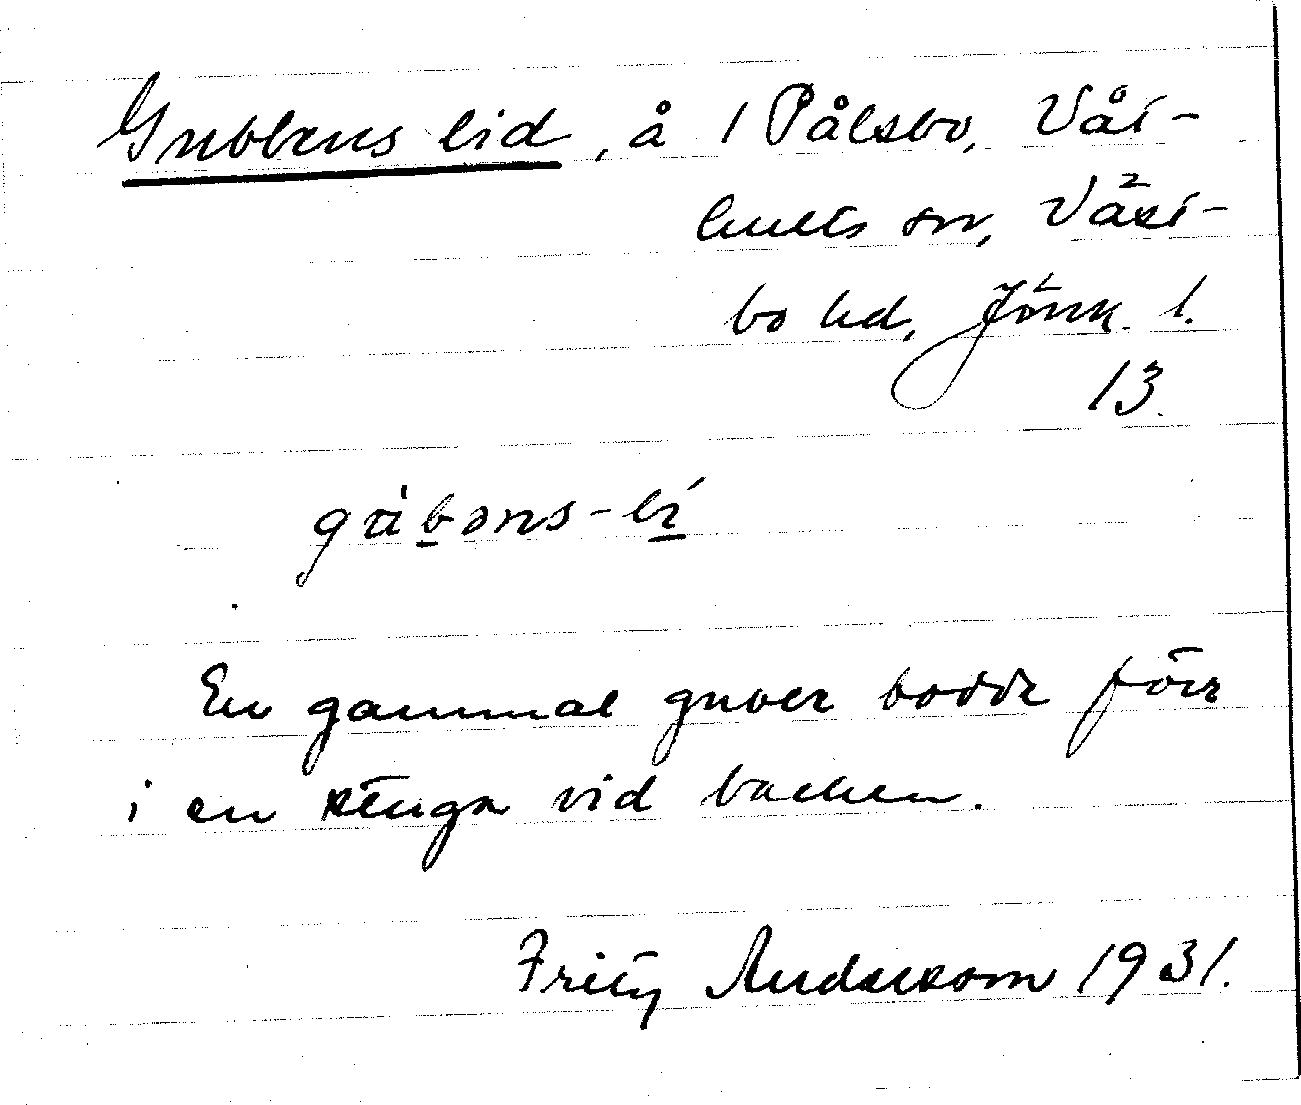 Gubbens lid, å 1 Pålsbo, Våt-
hults sn, Väst-
bo hd, Jönk. l.
13.
gùbəns-lí
En gammal gubbe bodde förr
i en stuga vid backen.
Fritz Andersson 1931.